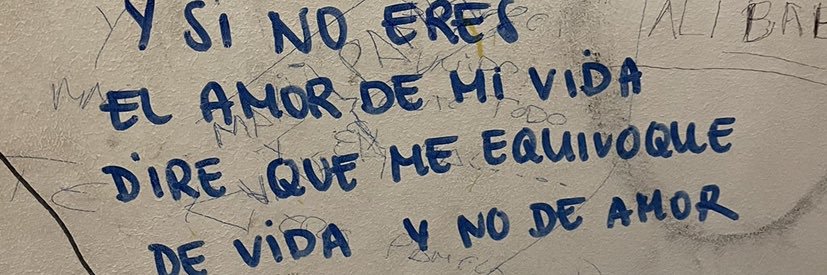 Y SI NO ERES
EL AMOR DE MI VIDA
DIRE QUE ME EQUIVOQUE
DE VIDA Y NO DE AMOR
ALI BAB